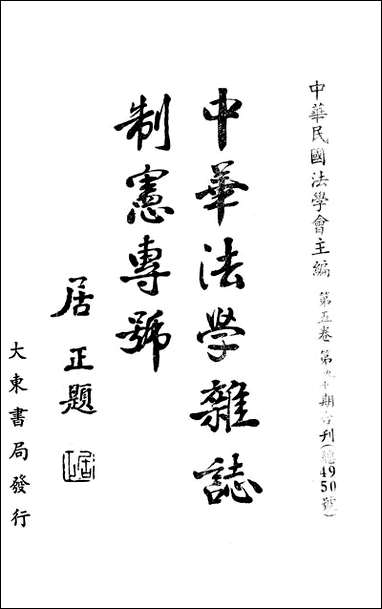 中華民國法學會主編
第五卷第九十期合刊(總49 50號)
中華法學雜誌
制憲專號
居正題
大東書局發行